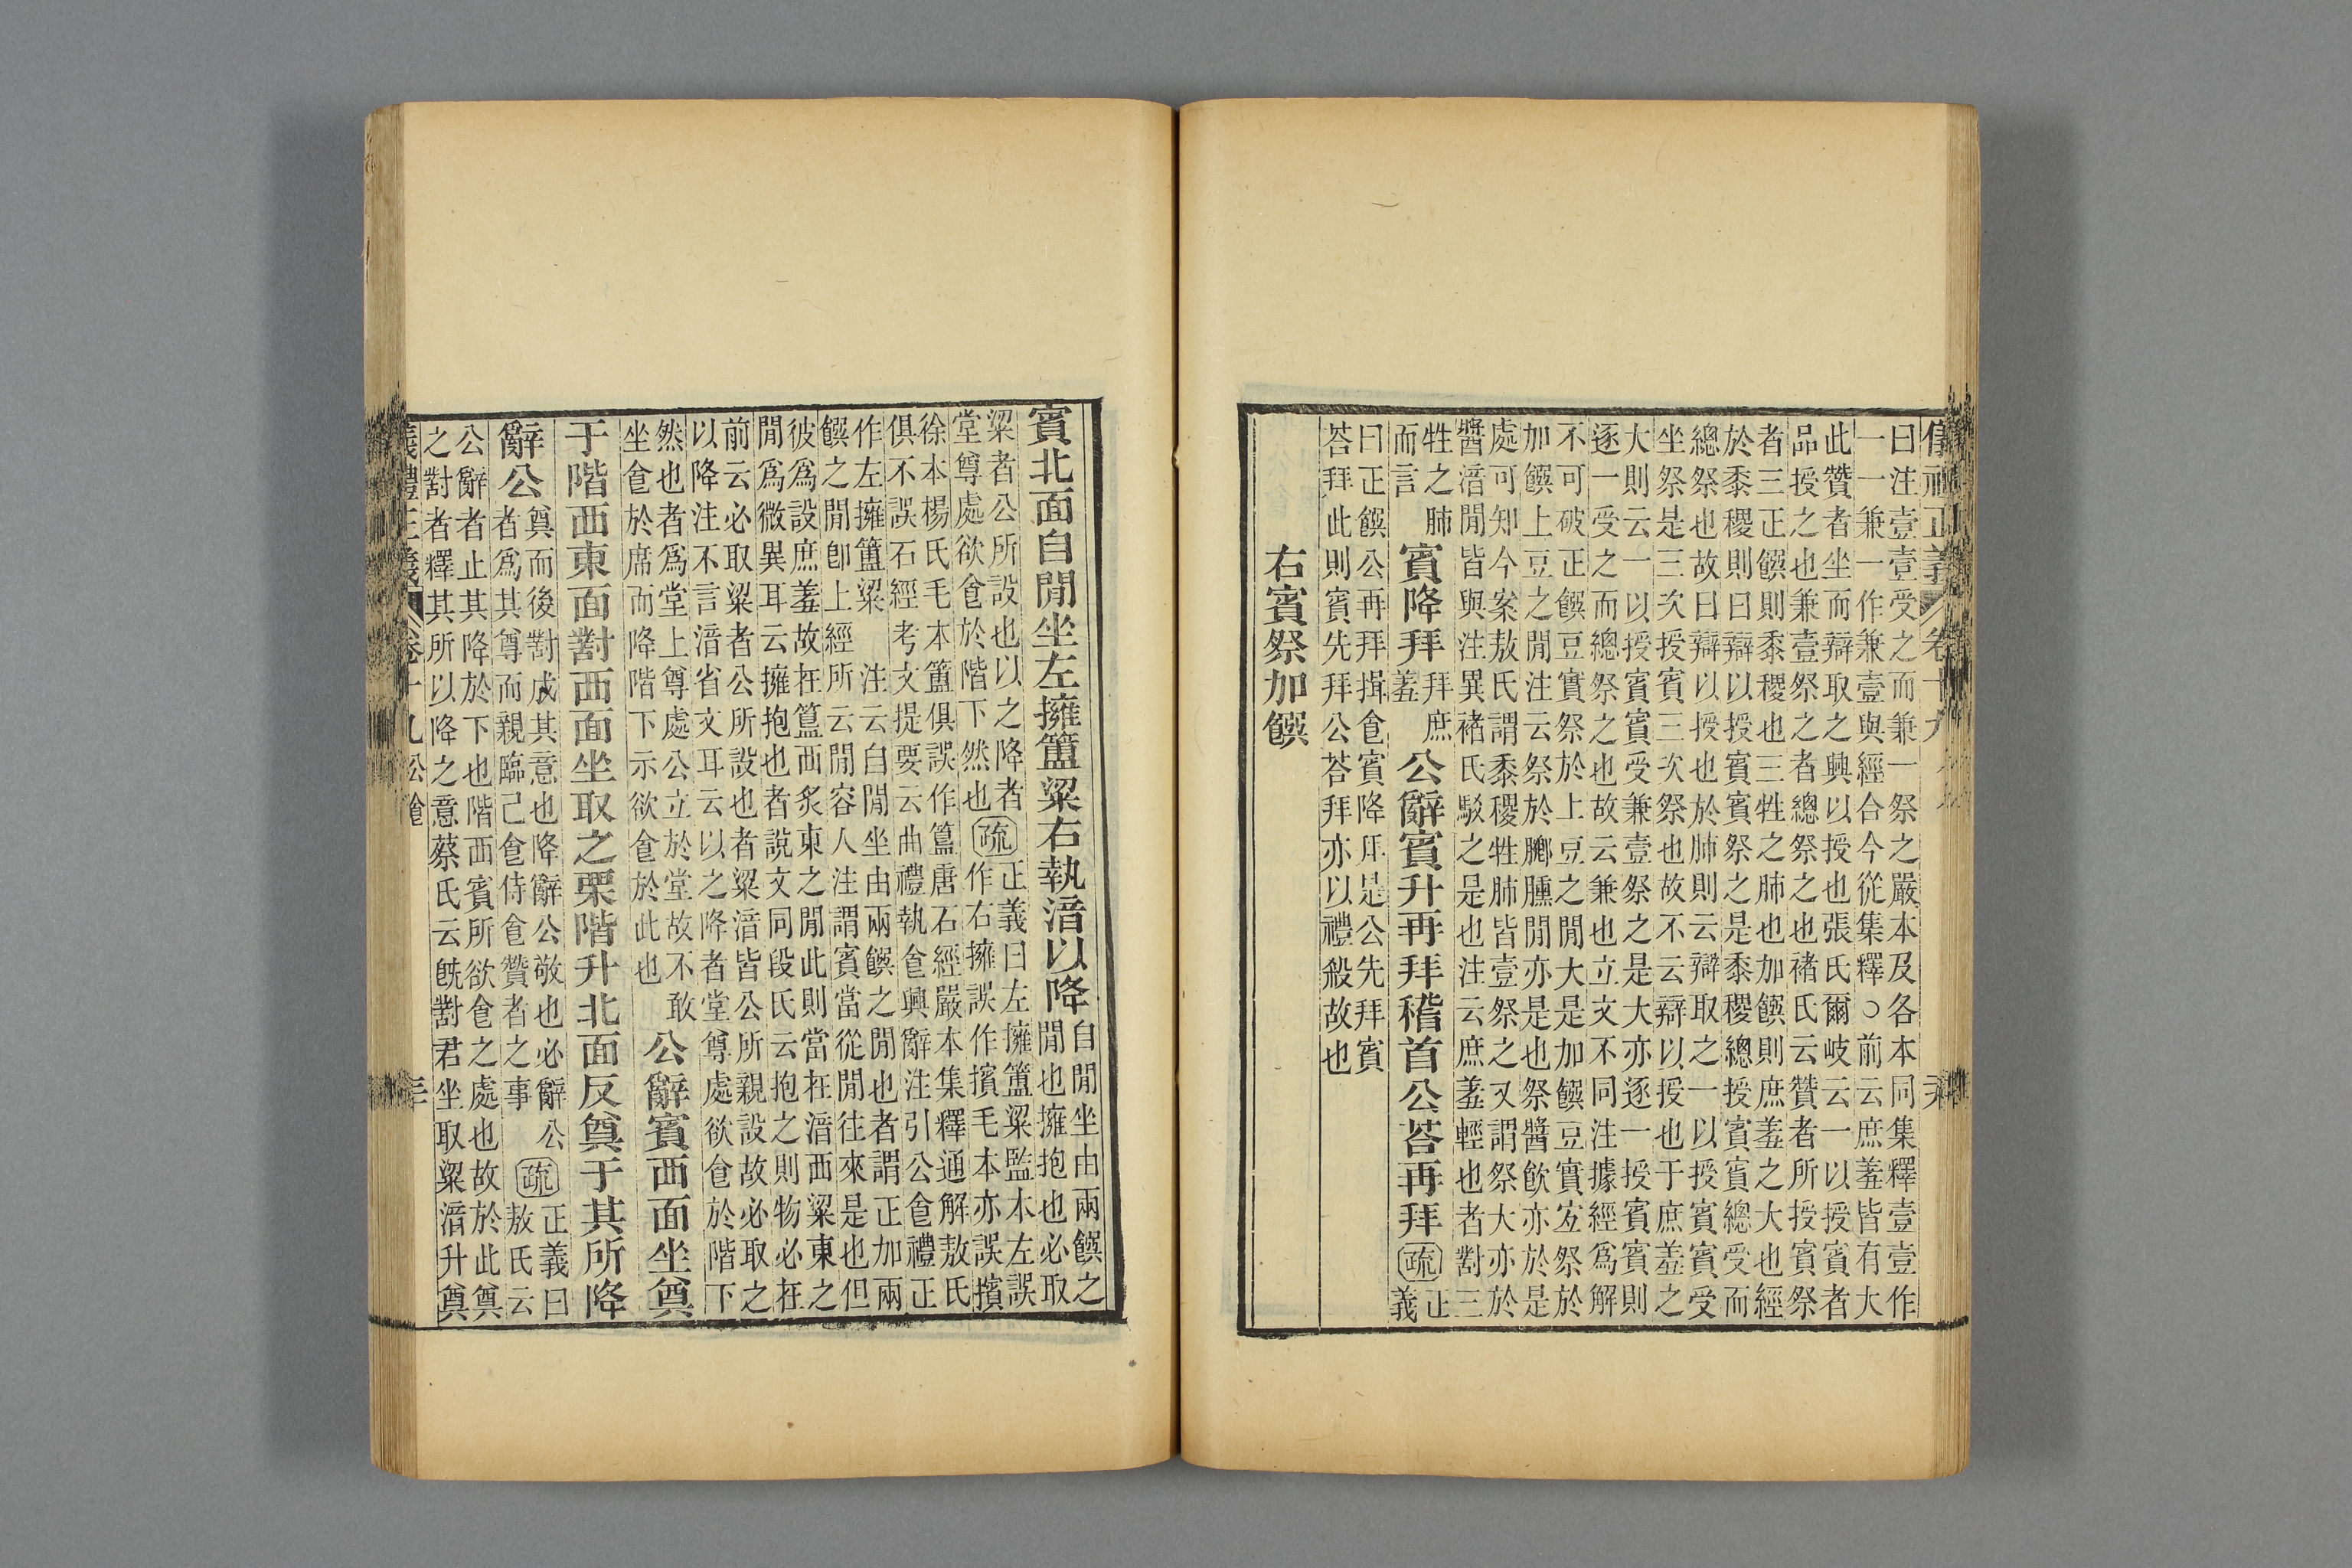 儀禮正義 卷十九
曰注壹壹受之而兼一祭之嚴本及各本同集釋壹壹作
一一兼一作兼壹與經合今從集釋○前云庶羞皆有大
此贊者坐而辯取之興以授也張氏爾岐云一以授賓者
品授之也兼壹祭之者總祭之也褚氏云贊者所授賓祭
者三正饌則黍稷也三牲之肺也加饌則庶羞之大也經
於黍稷則曰辯以授賓賓祭之是黍稷總授賓賓總受而
總祭也故曰辯以授也於肺則云辯取之一以授賓賓受
坐祭是三次授賓三次祭也故不云辯以授也于庶羞之
大則云一以授賓賓受兼壹祭之是大亦逐一授賓賓則
逐一受之而總祭之也故云兼也立文不同注據經爲解
不可破正饌豆實祭於上豆之閒大是加饌豆實宐祭於
加饌上豆之閒注云祭於膷臐閒亦是也祭醬飮亦於是
處可知今案敖氏謂黍稷牲肺皆壹祭之又謂祭大亦於
醬湆閒皆與注異褚氏駁之是也注云庶羞輕也者對三
牲之肺
而言
賓降拜
拜庶
羞
公辭賓升再拜稽首公荅再拜
疏
正
義
曰正饌公再拜揖食賓降拜是公先拜賓
荅拜此則賓先拜公荅拜亦以禮殺故也
右賓祭加饌
賓北面自閒坐左擁簠粱右執湆以降
自閒坐由兩饌之
閒也擁抱也必取
粱者公所設也以之降者
堂尊處欲食於階下然也
疏
正義曰左擁簠粱監本左誤
作右擁誤作擯毛本亦誤擯
徐本楊氏毛本簠俱誤作簋唐石經嚴本集釋通解敖氏
俱不誤石經考文提要云曲禮執食興辭注引公食禮正
作左擁簠粱 注云自閒坐由兩饌之閒也者謂正加兩
饌之閒卽上經所云閒容人注謂賓當從閒往來是也但
彼爲設庶羞故在簋西炙東之閒此則當在湆西粱東之
閒爲微異耳云擁抱也者說文同段氏云抱之則物必在
前云必取粱者公所設也者粱湆皆公所親設故必取之
以降注不言湆省文耳云以之降者堂尊處欲食於階下
然也者爲堂上尊處公立於堂故不敢
坐食於席而降階下示欲食於此也
公辭賓西面坐奠
于階西東面對西面坐取之栗階升北面反奠于其所降
辭公
奠而後對成其意也降辭公敬也必辭公
者爲其尊而親臨己食侍食贊者之事
疏
正義曰
敖氏云
公辭者止其降於下也階西賓所欲食之處也故於此奠
之對者釋其所以降之意蔡氏云旣對君坐取粱湆升奠